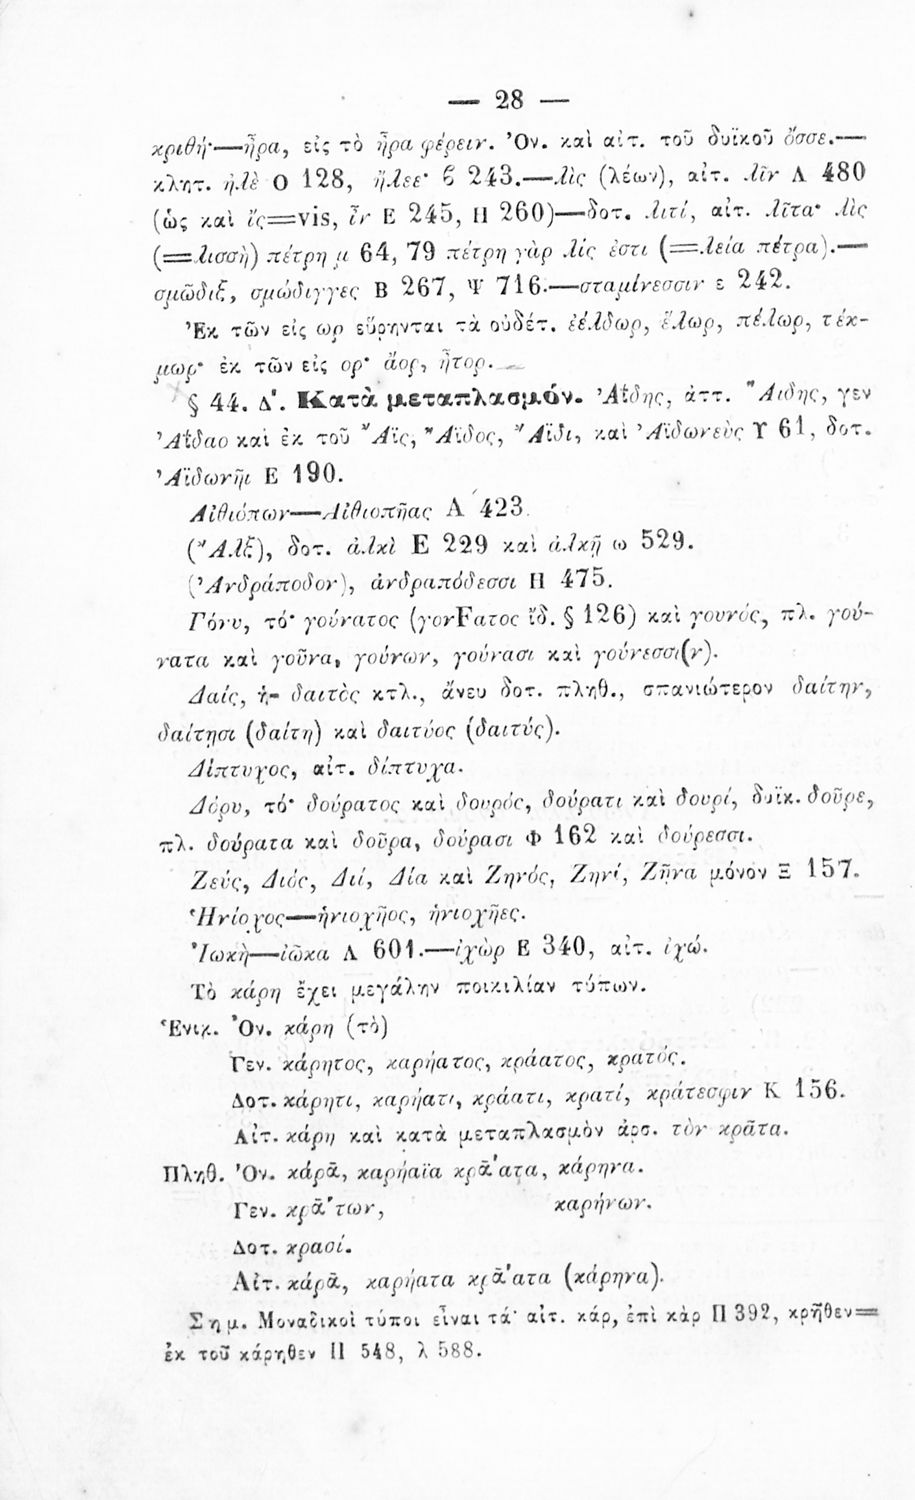 — 28 —
κριθή·—ἦρα, εἰς τὸ ἦρα φέρειν. Ὀν. καὶ αἰτ. τοῦ δυϊκοῦ ὄσσε.—
κλητ. ἠλὲ Ο 128, ἠλεέ· β 243.—λὶς (λέων), αἰτ. λῖν Λ 480
(ὡς καὶ ἴς=vis, ἶν Ε 245, Η 260)—δοτ. λιτί, αἰτ. λῖτα· λὶς
(=λισσὴ) πέτρη μ 64, 79 πέτρη γὰρ λίς ἐστι (=λεία πέτρα).—
σμῶδιξ, σμώδιγγες Β 267, Ψ 716·—σταμίνεσσιν ε 242.
Ἐκ τῶν εἰς ωρ εὕρηνται τὰ οὐδέτ. ἐέλδωρ, ἕλωρ, πέλωρ, τέκ-
μωρ· ἐκ τῶν εἰς ορ· ἄορ, ἦτορ.
§ 44. Δ΄. Κατὰ μεταπλασμόν. Ἀΐδης, ἀττ. Ἅιδης, γεν
Ἀΐδαο καὶ ἐκ τοῦ Ἄϊς, Ἄϊδος, Ἄϊδι, καὶ Ἀϊδωνεὺς Υ 61, δοτ.
Ἀϊδωνῆϊ Ε 190.
Αἰθιόπων—Αἰθιοπῆας Α 423.
(Ἄλξ), δοτ. ἀλκὶ Ε 229 καὶ ἀλκῇ ω 529.
(Ἀνδράποδον), ἀνδραπόδεσσι Η 475.
Γόνυ, τό· γούνατος (γονFατος ἴδ. § 126) καὶ γουνός, πλ. γού-
νατα καὶ γοῦνα, γούνων, γούνασι καὶ γούνεσσι(ν).
Δαίς, ἡ- δαιτὸς κτλ., ἄνευ δοτ. πληθ., σπανιώτερον δαίτην,
δαίτῃσι (δαίτη) καὶ δαιτύος (δαιτύς).
Δίπτυχος, αἰτ. δίπτυχα.
Δόρυ, τό· δούρατος καὶ δουρός, δούρατι καὶ δουρί, δυϊκ. δοῦρε,
πλ. δούρατα καὶ δοῦρα, δούρασι Φ 162 καὶ δούρεσσι.
Ζεύς, Διός, Διί, Δία καὶ Ζηνός, Ζηνί, Ζῆνα μόνον Ξ 157.
Ἡνίοχος—ἡνιοχῆος, ἡνιοχῆες.
Ἰωκὴ—ἰῶκα Λ 601.—ἰχὼρ Ε 340, αἰτ. ἰχῶ.
Τὸ κάρη ἔχει μεγάλην ποικιλίαν τύπων.
Ἑνικ. Ὀν. κάρη (τὸ)
Γεν. κάρητος, καρήατος, κράατος, κρατός.
Δοτ. κάρητι, καρήατι, κράατι, κρατί, κράτεσφιν Κ 156.
Αἰτ. κάρη καὶ κατὰ μεταπλασμὸν ἀρσ. τὸν κρᾶτα.
Πληθ. Ὀν. κάρᾱ, καρήαϊα κρᾱ́ατα, κάρηνα.
Γεν. κρᾱ́των, καρήνων.
Δοτ. κρασί.
Αἰτ. κάρᾱ, καρήατα κρᾱ́ατα (κάρηνα).
Σημ. Μοναδικοὶ τύποι εἶναι τά· αἰτ. κάρ, ἐπὶ κὰρ Π 392, κρῆθεν=
ἐκ τοῦ κάρηθεν Π 548, λ 588.